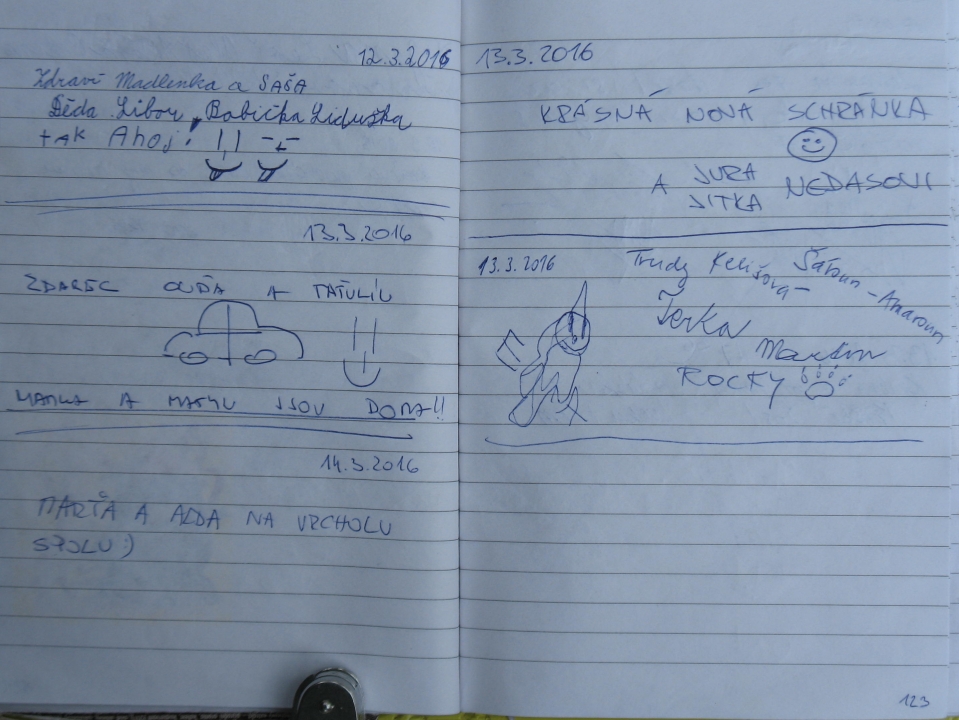 12.3.2016
Zdraví Madlenka a SAŠA
Děda Libor, Babička Liduška
+AK Ahoj!
13.3.2016
ZDAREC OUĎA A TAŤULÍU
A MATYU JSOU DOMA!!
14.3.2016
MARŤA A ALDA NA VRCHOLU
SPOLU :)
13.3.2016
KRÁSNÁ NOVÁ SCHRÁNKA
A JURA JITKA NEDASOVI
13.3.2016
Trudy
Terka
Martin
ROCKY
123